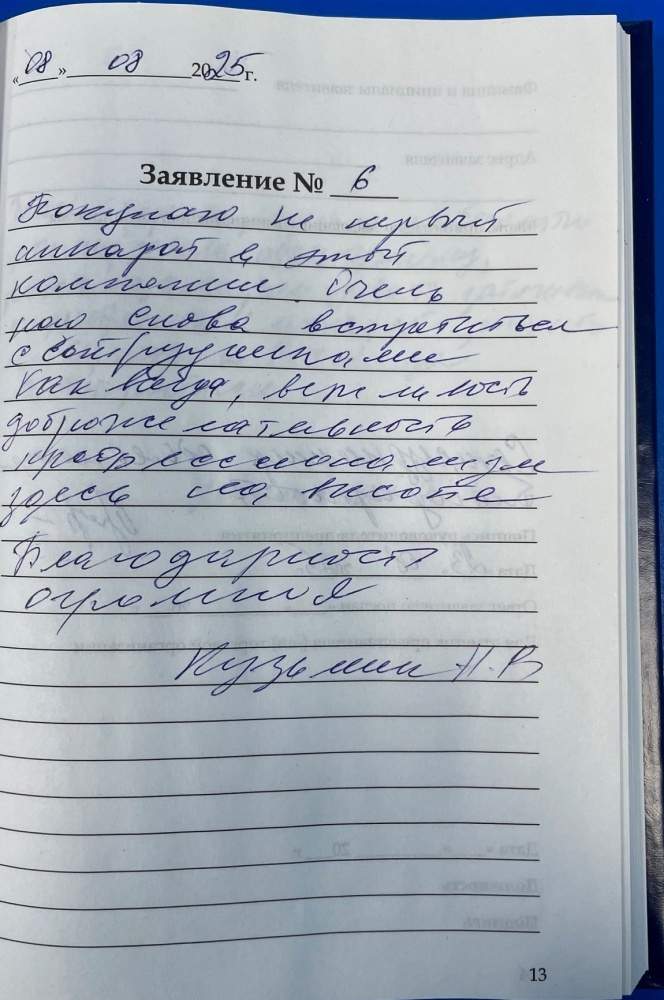 «08» 08 2025 г.
Заявление № 6
Покупаю не первый
аппарат в этой
компании. Очень
рад снова встретиться
с сотрудниками
Как всегда, вежливость
доброжелательность
профессионализм
здесь на высоте
Благодарность
огромная
Кузьмин П.В
13